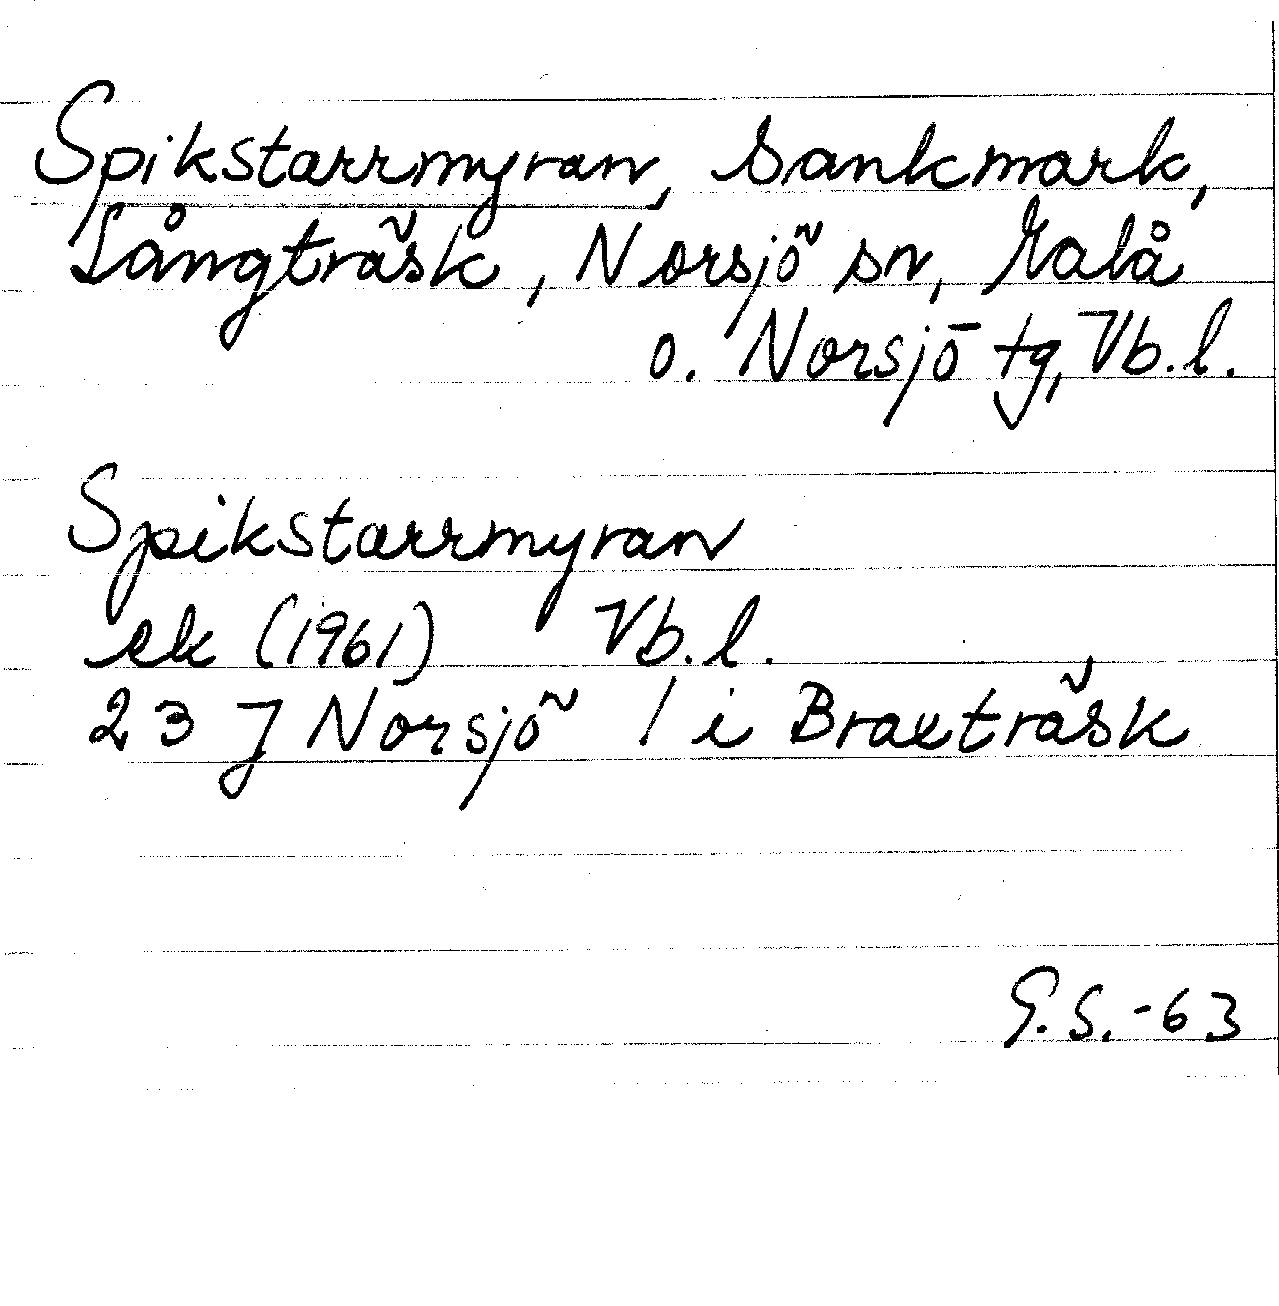 Spikstarrmyran, Sankmark,
Långträsk, Norsjö sn, Malå
o. Norsjö tg, Vb.l.
Spikstarrmyran
ek (1961) Vb.l.
23 J Norsjö 1 i Braxträsk
G.S.-63